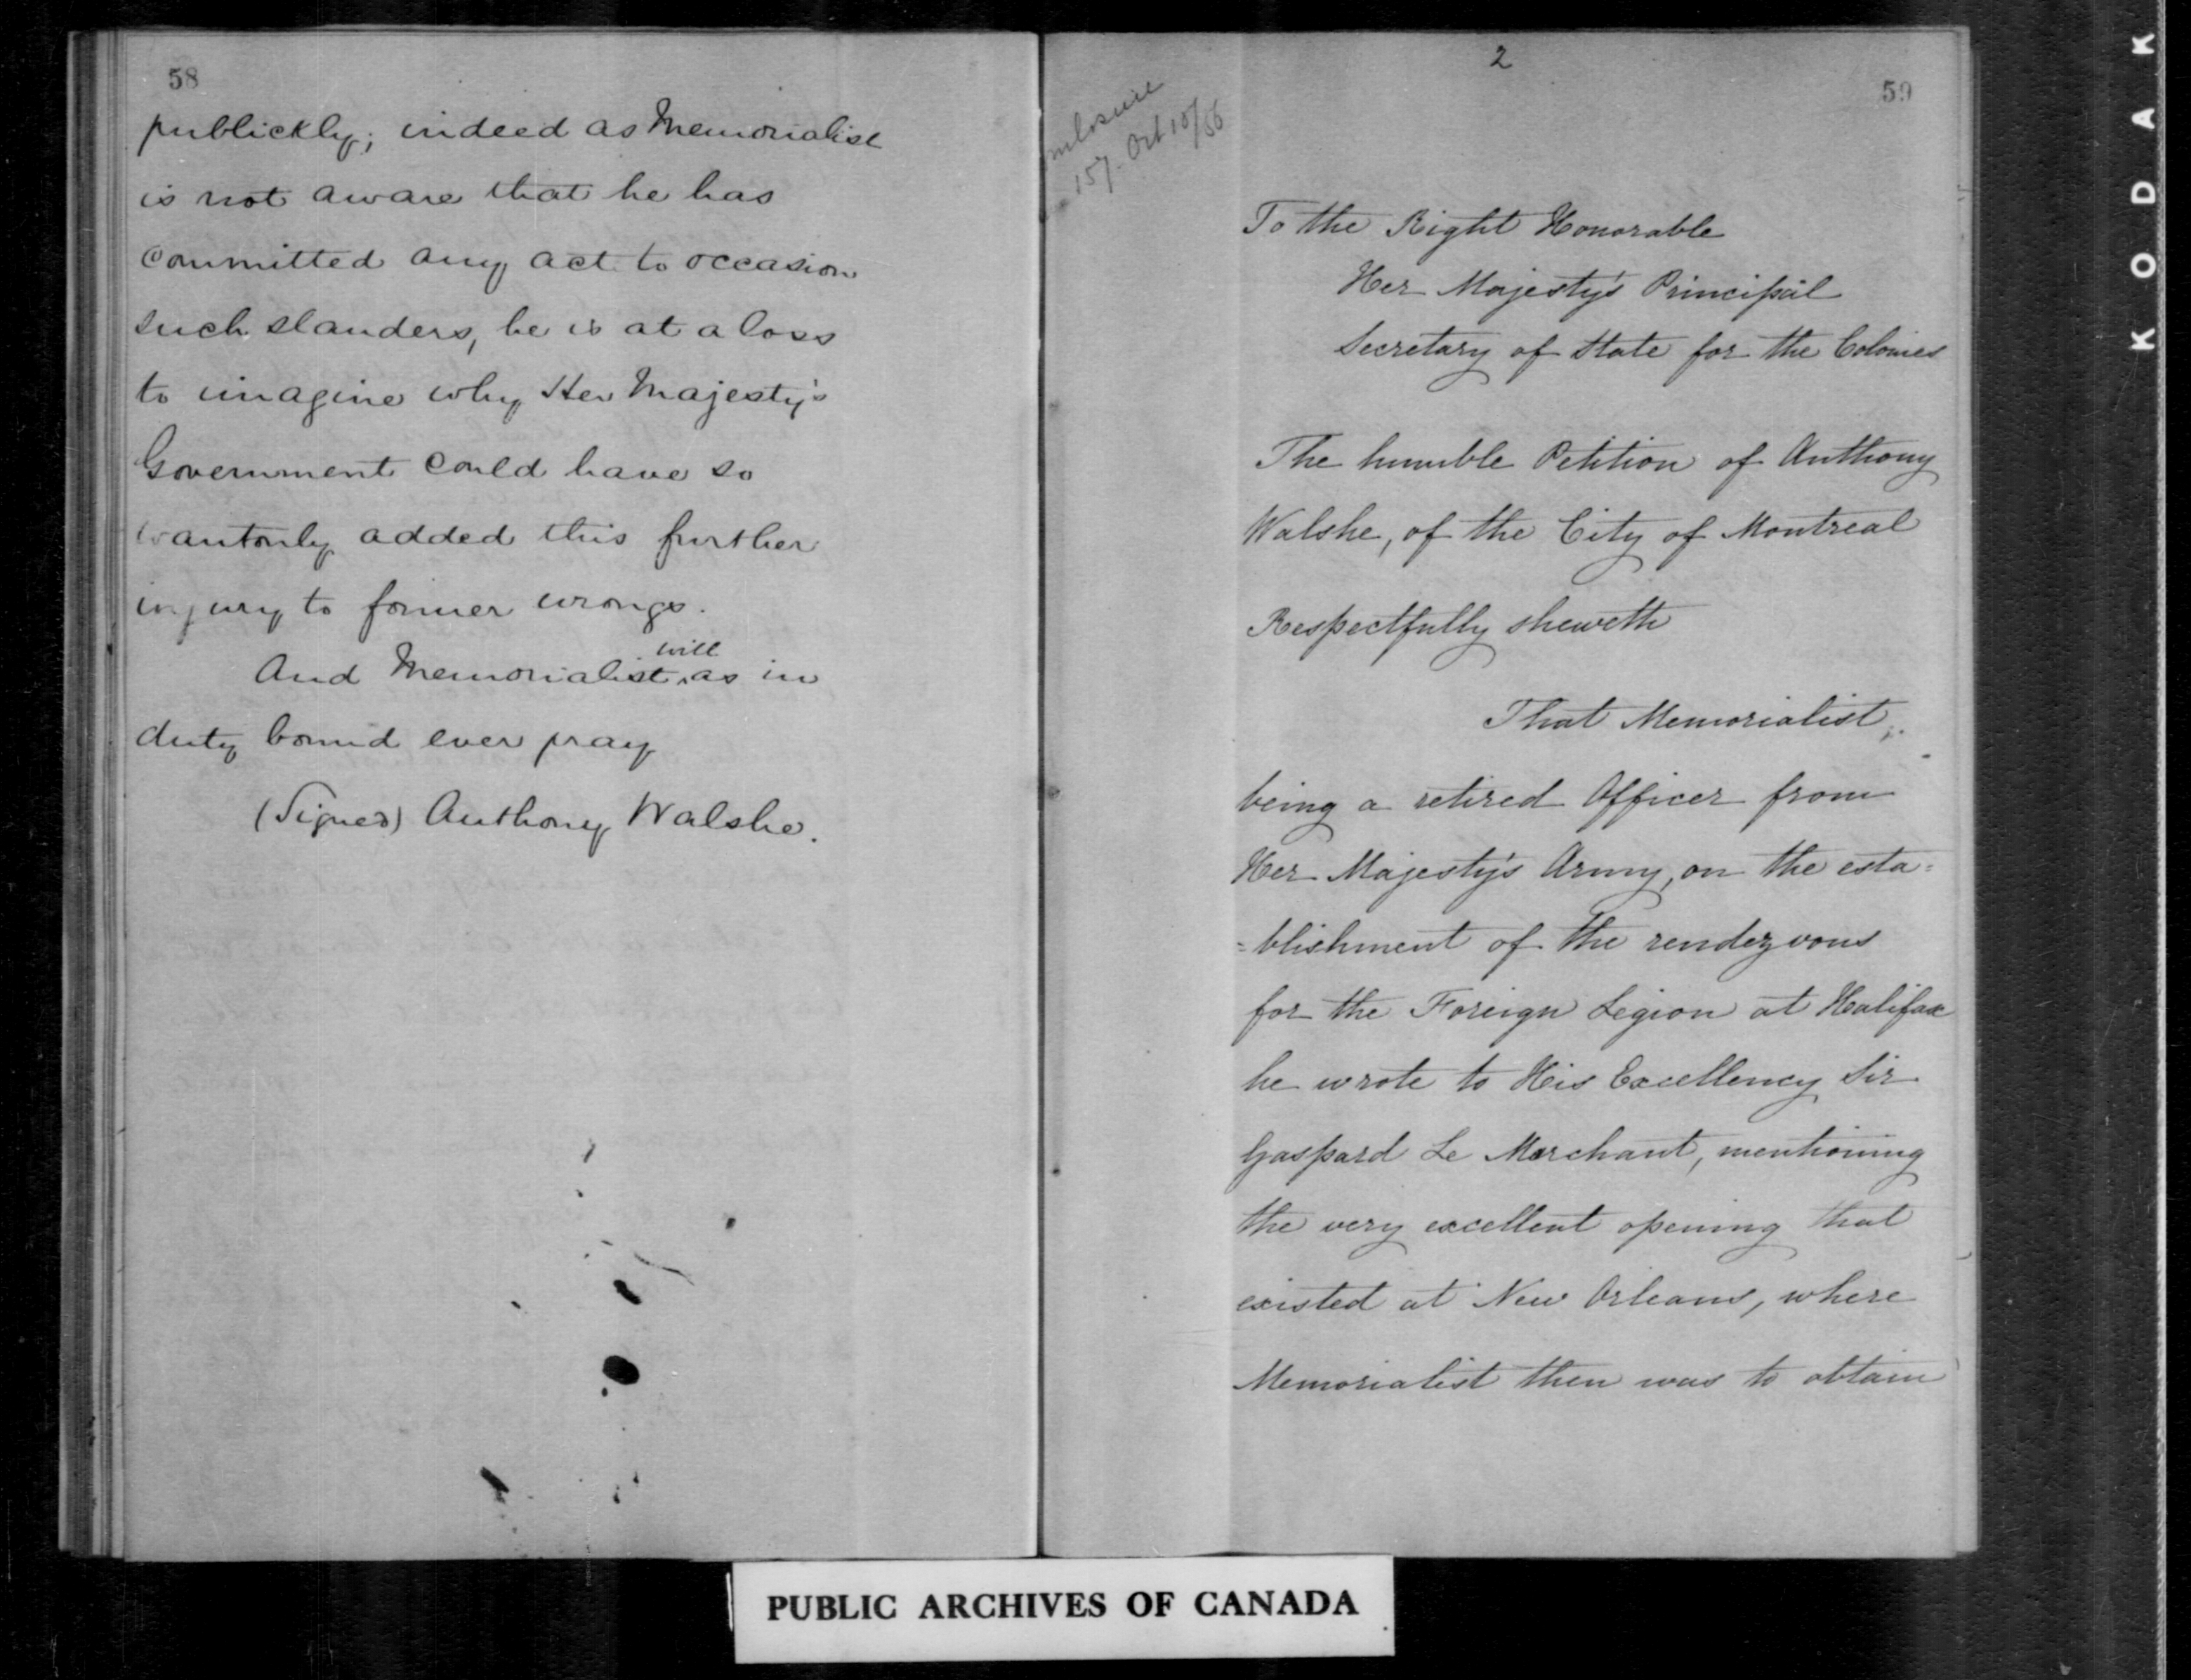 58
publickly; indeed as Memorialist
is not aware that he has
committed any act to occasion
such slanders, he is at a loss
to imagine why Her Majesty's
Government could have so
wantonly added this further
injury to former wrongs.
And Memorialist will as in
duty bound ever pray
(Signed) Anthony Walshe.
2
59
157. Oct 10/56
To the Right Honorable
Her Majesty's Principal
Secretary of State for the Colonies
The humble Petition of Anthony
Walshe, of the City of Montreal
Respectfully sheweth
That Memorialist,
being a retired Officer from
Her Majesty's Army, on the esta=
=blishment of the rendezvous
for the Foreign Legion at Halifax
he wrote to His Excellency Sir
Gaspard Le Marchant, mentioning
the very excellent opening that
existed at New Orleans, where
Memorialist then was to obtain
PUBLIC ARCHIVES OF CANADA
KODAK